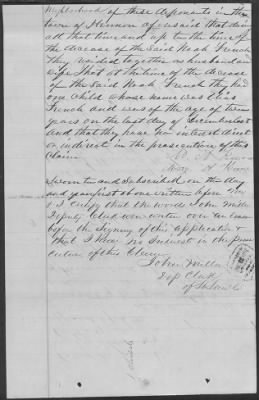 Neighborhood of these deponents in the
town of Hennon aforesaid that during
all that time and up to the time of
the decease of the Said Noah French
they resided together as husband and
wife that at the time of the decease
of the Said Noah French they had
one Child whose name was
French and was of the age of three
years on the last day of December last
and that they have no interest direct
or indirect in the prosecution of this
Claim
Mary A
Sworn to and Subscribed on the day
and year first above written before me
& I certify that the words John Miller
Deputy Clerk were written over an erasure
before the Signing of this application &
that I have no Interest in the prose
cution of this Claim
John Miller
Dep Clerk
of